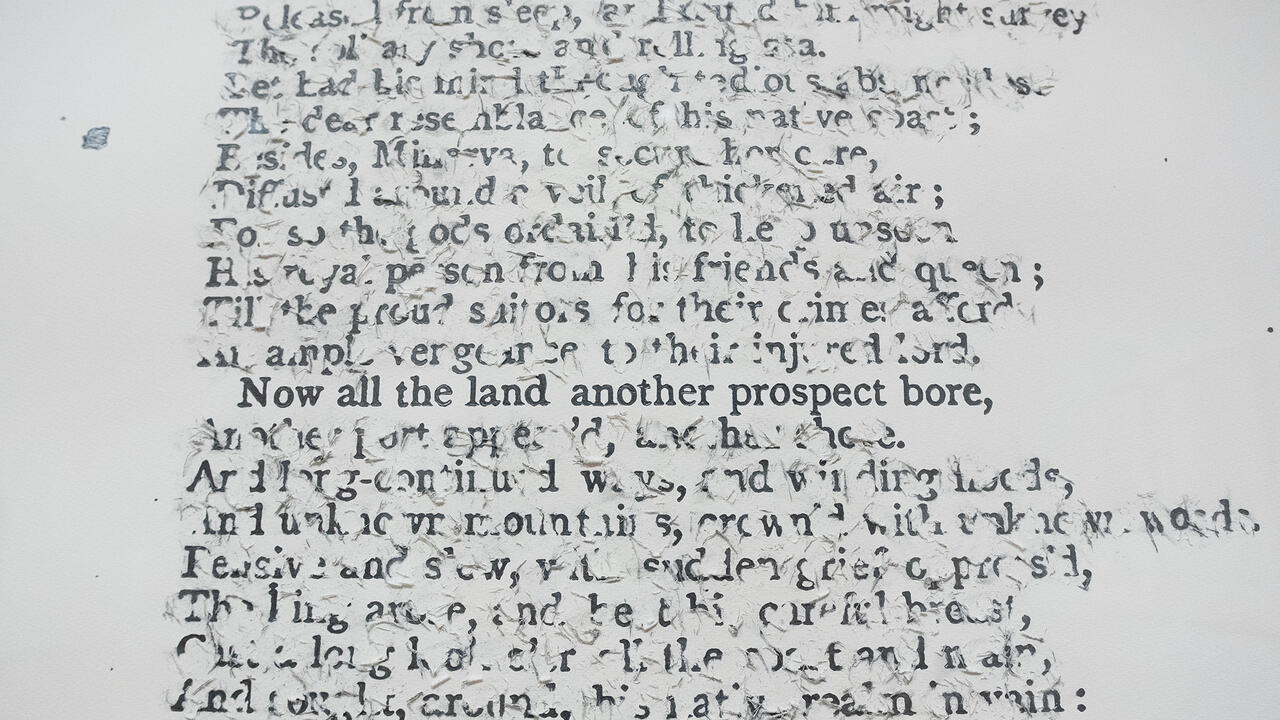 from sleep, and round him might survey
The solitary shore and rolling sea.
Yet had his mind through tedious
The dear resemblance of his native coast;
Besides, Minerva, to secure her care,
Diffus'd around a veil of thickened air;
For so the gods ordain'd, to keep unseen
His royal person from his friends and queen;
Till the proud suitors for their crimes afford
An ample vengeance to their injured lord.
Now all the land another prospect bore,
Another port appear'd, another shore.
And long-continued ways, and winding floods,
And unknown mountains, crown'd with unknown woods.
Pensive and slow, with sudden grief oppress'd,
The king arose, and beat his careful breast,
Cast a long look o'er all the coast and main,
And sought, around, his native realm in vain: